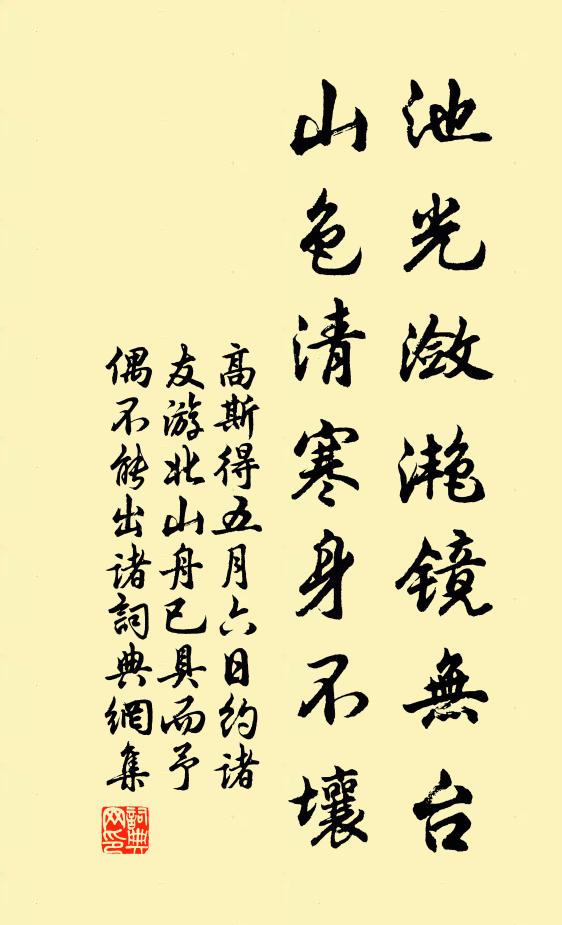 池光潋滟镜無台
山色清寒身不壤
高斯得五月六日约诸
友游北山舟已具而予
偶不能出诸詞典網集
詞典
网印